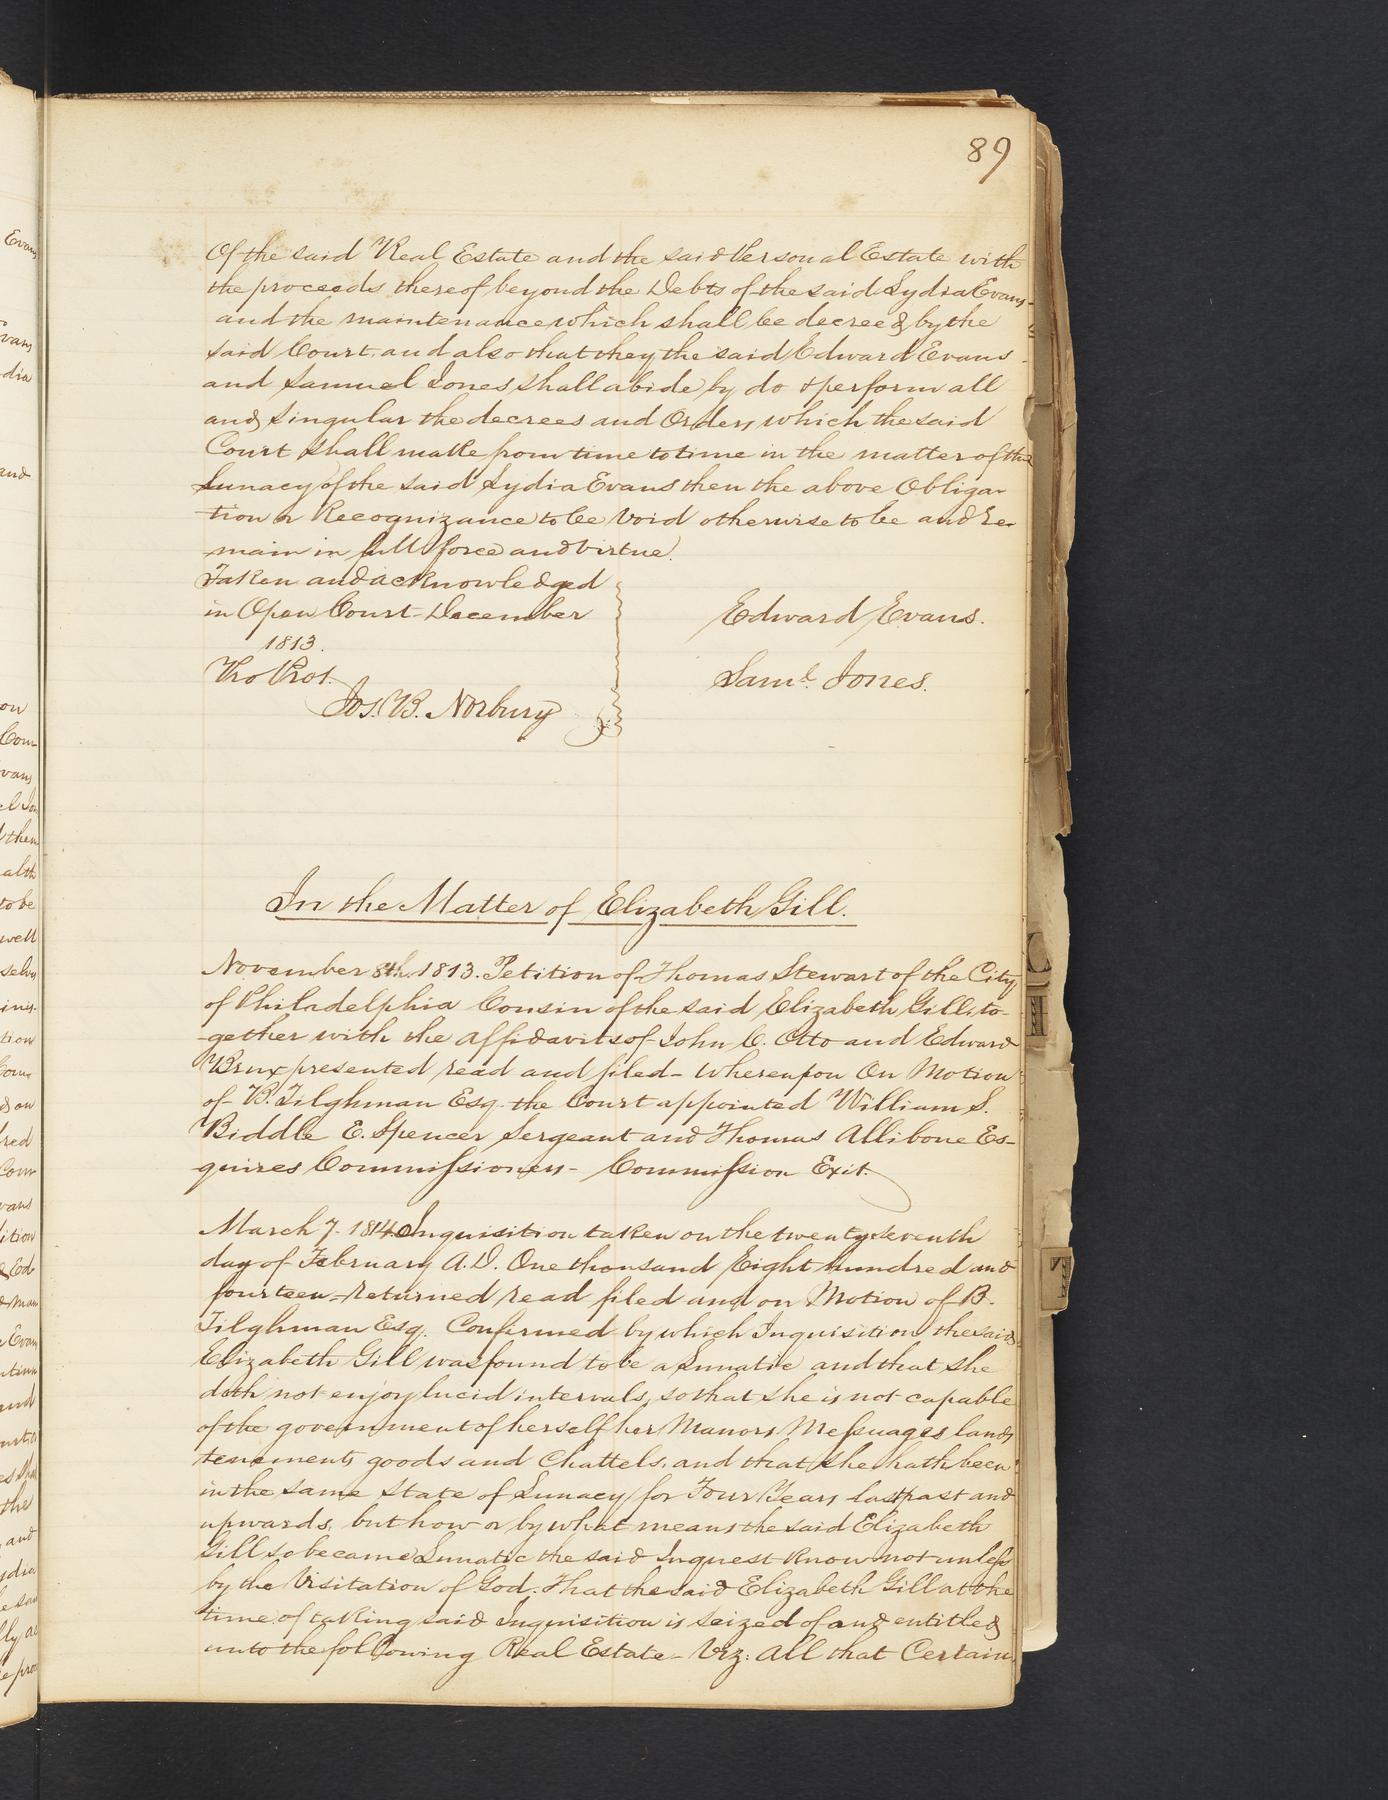 89
Of the said Real Estate and the said Personal Estate with
the proceeds thereof beyond the Debts of the said Lydia Evans
and the maintenance which shall be decreed by the
said Court and also that they the said Edward Evans
and Samuel Jones shall abide by do & perform all
and Singular the decrees and Orders which the said
Court shall make from time to time in the matter of the
Lunacy of the said Lydia Evans then the above Obliga-
tion or Recognizance to be Void otherwise to be and re-
main in full force and virtue.
Taken and acknowledged
in Open Court December
1813.
Pro Prot.
Jos. B. Norbury
Edward Evans.
Saml. Jones.
In the Matter of Elizabeth Gill.
November 8th. 1813. Petition of Thomas Stewart of the City
of Philadelphia Cousin of the said Elizabeth Gill, to-
gether with the affidavits of John C. Otto and Edward
Brux presented, read and filed - Whereupon On Motion
of B. Tilghman Esq. the Court appointed William S.
Biddle E. Spencer Sergeant and Thomas Allibone Es-
quires Commissioners - Commission Exit.
March 7. 1814. Inquisition taken on the twenty seventh
day of February A.D. One thousand Eight hundred and
fourteen - returned read filed and on Motion of B.
Tilghman Esq. Confirmed by which Inquisition the said
Elizabeth Gill was found to be a Lunatic and that she
doth not enjoy lucid intervals, so that she is not capable
of the government of herself her Manors Messuages lands
tenements goods and Chattels, and that she hath been
in the same state of Lunacy for Four Years last past and
upwards, but how or by what means the said Elizabeth
Gill so became Lunatic the said Inquest know not unless
by the Visitation of God. That the said Elizabeth Gill at the
time of taking said Inquisition is seized of and entitled
unto the following Real Estate - Viz: All that Certain